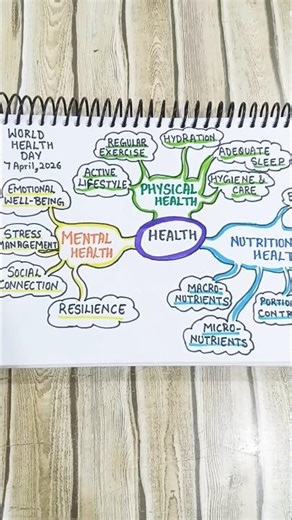 WORLD
HEALTH
DAY
7 April, 2026
REGULAR
EXERCISE
HYDRATION
ADEQUATE
SLEEP
ACTIVE
LIFESTYLE
PHYSICAL
HEALTH
HYGIENE &
CARE
EMOTIONAL
WELL-BEING
STRESS
MANAGEMENT
MENTAL
HEALTH
HEALTH
NUTRITION
HEALT
SOCIAL
CONNECTION
RESILIENCE
MACRO-
NUTRIENTS
PORTION
CONTR
MICRO-
NUTRIENTS